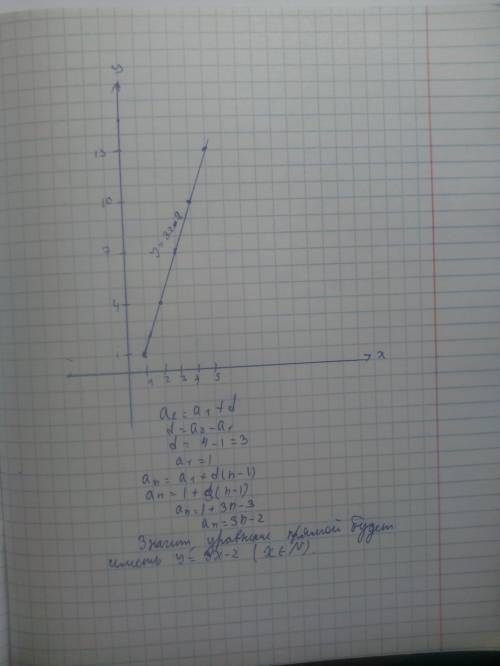 y
13
10
7
4
1
y = 3x-2
1 2 3 4 5 x
a₂ = a₁ + d
d = a₂ - a₁
d = 4 - 1 = 3
a₁ = 1
aₙ = a₁ + d(n-1)
aₙ = 1 + 3(n-1)
aₙ = 1 + 3n - 3
aₙ = 3n - 2
Значит уравнение прямой будет
иметь y = 3x-2 (x∈N)